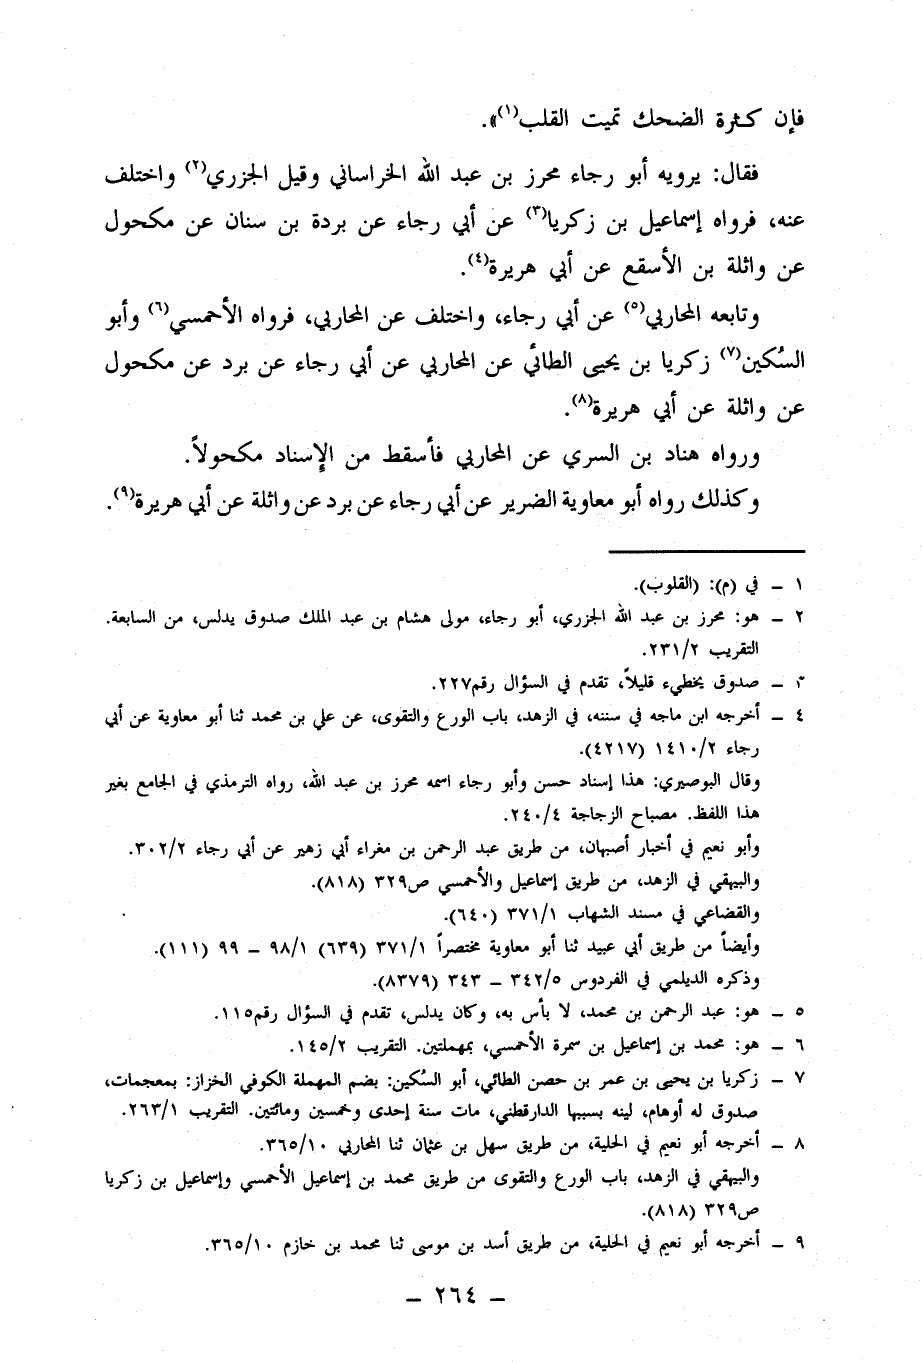 فإن كثرة الضحك تميت القلب(١)».
فقال: يرويه أبو رجاء محرز بن عبد الله الخراساني وقيل الجزري(٢) واختلف
عنه، فرواه إسماعيل بن زكريا(٣) عن أبي رجاء عن بردة بن سنان عن مكحول
عن واثلة بن الأسقع عن أبي هريرة(٤).
وتابعه المحاربي(٥) عن أبي رجاء، واختلف عن المحاربي، فرواه الأحمسي(٦) وأبو
السُكين(٧) زكريا بن يحيى الطائي عن المحاربي عن أبي رجاء عن برد عن مكحول
عن واثلة عن أبي هريرة(٨).
ورواه هناد بن السري عن المحاربي فأسقط من الإسناد مكحولاً.
وكذلك رواه أبو معاوية الضرير عن أبي رجاء عن برد عن واثلة عن أبي هريرة(٩).
١ - في (م): (القلوب).
٢ - هو: محرز بن عبد الله الجزري، أبو رجاء، مولى هشام بن عبد الملك صدوق يدلس، من السابعة.
التقريب ٢٣١/٢.
٣ - صدوق يخطيء قليلاً، تقدم في السؤال رقم٢٢٧.
٤ - أخرجه ابن ماجه في سننه، في الزهد، باب الورع والتقوى، عن علي بن محمد ثنا أبو معاوية عن أبي
رجاء ١٤١٠/٢ (٤٢١٧).
وقال البوصيري: هذا إسناد حسن وأبو رجاء اسمه محرز بن عبد الله، رواه الترمذي في الجامع بغير
هذا اللفظ. مصباح الزجاجة ٢٤٠/٤.
وأبو نعيم في أخبار أصبهان، من طريق عبد الرحمن بن مغراء أبي زهير عن أبي رجاء ٣٠٢/٢.
والبيهقي في الزهد، من طريق إسماعيل والأحمسي ص٣٢٩ (٨١٨).
والقضاعي في مسند الشهاب ٣٧١/١ (٦٤٠).
وأيضاً من طريق أبي عبيد ثنا أبو معاوية مختصراً ٣٧١/١ (٦٣٩) ٩٨/١ - ٩٩ (١١١).
وذكره الديلمي في الفردوس ٣٤٢/٥ - ٣٤٣ (٨٣٧٩).
٥ - هو: عبد الرحمن بن محمد، لا بأس به، وكان يدلس، تقدم في السؤال رقم١١٥.
٦ - هو: محمد بن إسماعيل بن سمرة الأحمسي، بمهملتين. التقريب ١٤٥/٢.
٧ - زكريا بن يحيى بن عمر بن حصن الطائي، أبو السُكين: بضم المهملة الكوفي الخزاز: بمعجمات،
صدوق له أوهام، لينه بسببها الدارقطني، مات سنة إحدى وخمسين ومائتين. التقريب ٢٦٣/١.
٨ - أخرجه أبو نعيم في الحلية، من طريق سهل بن عثمان ثنا المحاربي ٣٦٥/١٠.
والبيهقي في الزهد، باب الورع والتقوى من طريق محمد بن إسماعيل الأحمسي وإسماعيل بن زكريا
ص٣٢٩ (٨١٨).
٩ - أخرجه أبو نعيم في الحلية، من طريق أسد بن موسى ثنا محمد بن خازم ٣٦٥/١٠.
- ٢٦٤ -